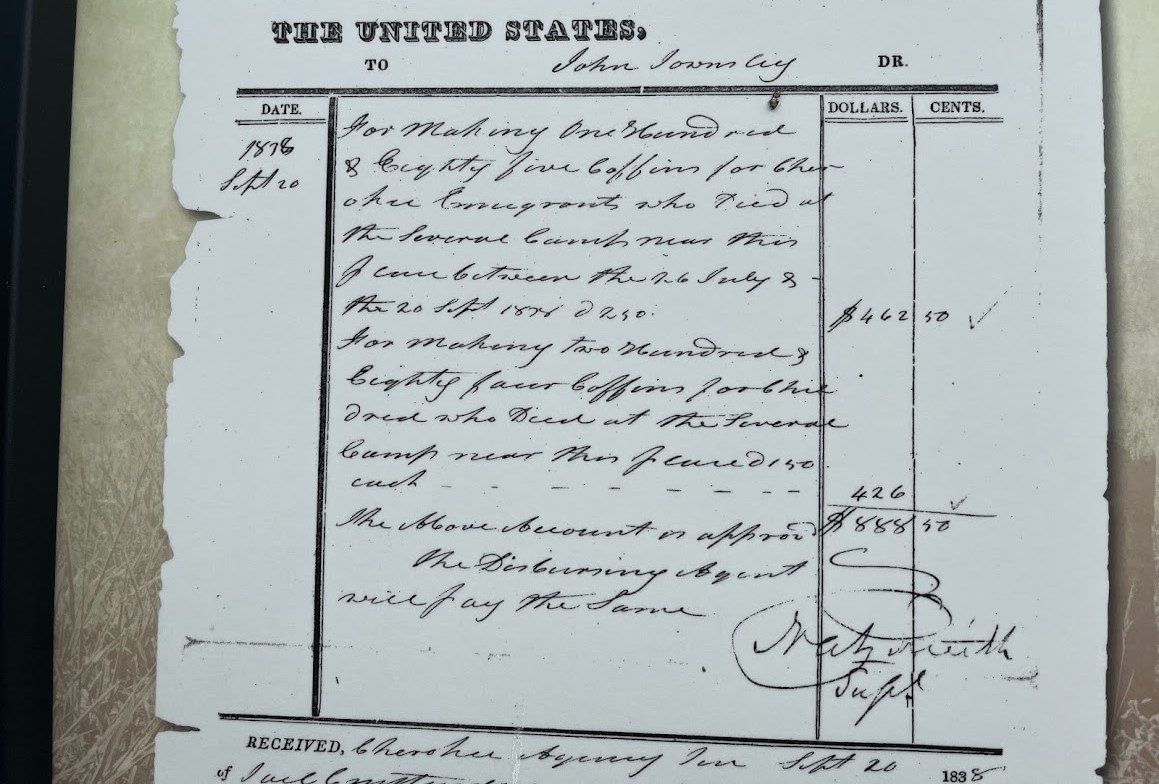 THE UNITED STATES,
TO John Townsley DR.
DATE. DOLLARS. CENTS.
1838
Sept 20
For Making One Hundred
& Eighty five Coffins for Cher
okee Emegrants who Died at
the Several Camps near this
place between the 26 July &
the 20 Sept 1838 @ 250. $462 50
For making two Hundred &
Eighty four Coffins for Chil
dred who Died at the Several
Camps near this place @ 150
each - - - - - - 426
The Above Account is approvd $888 50
The Disbursing Agent
will pay the Same
Nat Smith
Supt
RECEIVED, Cherokee Agency Ten Sept 20
of 1838